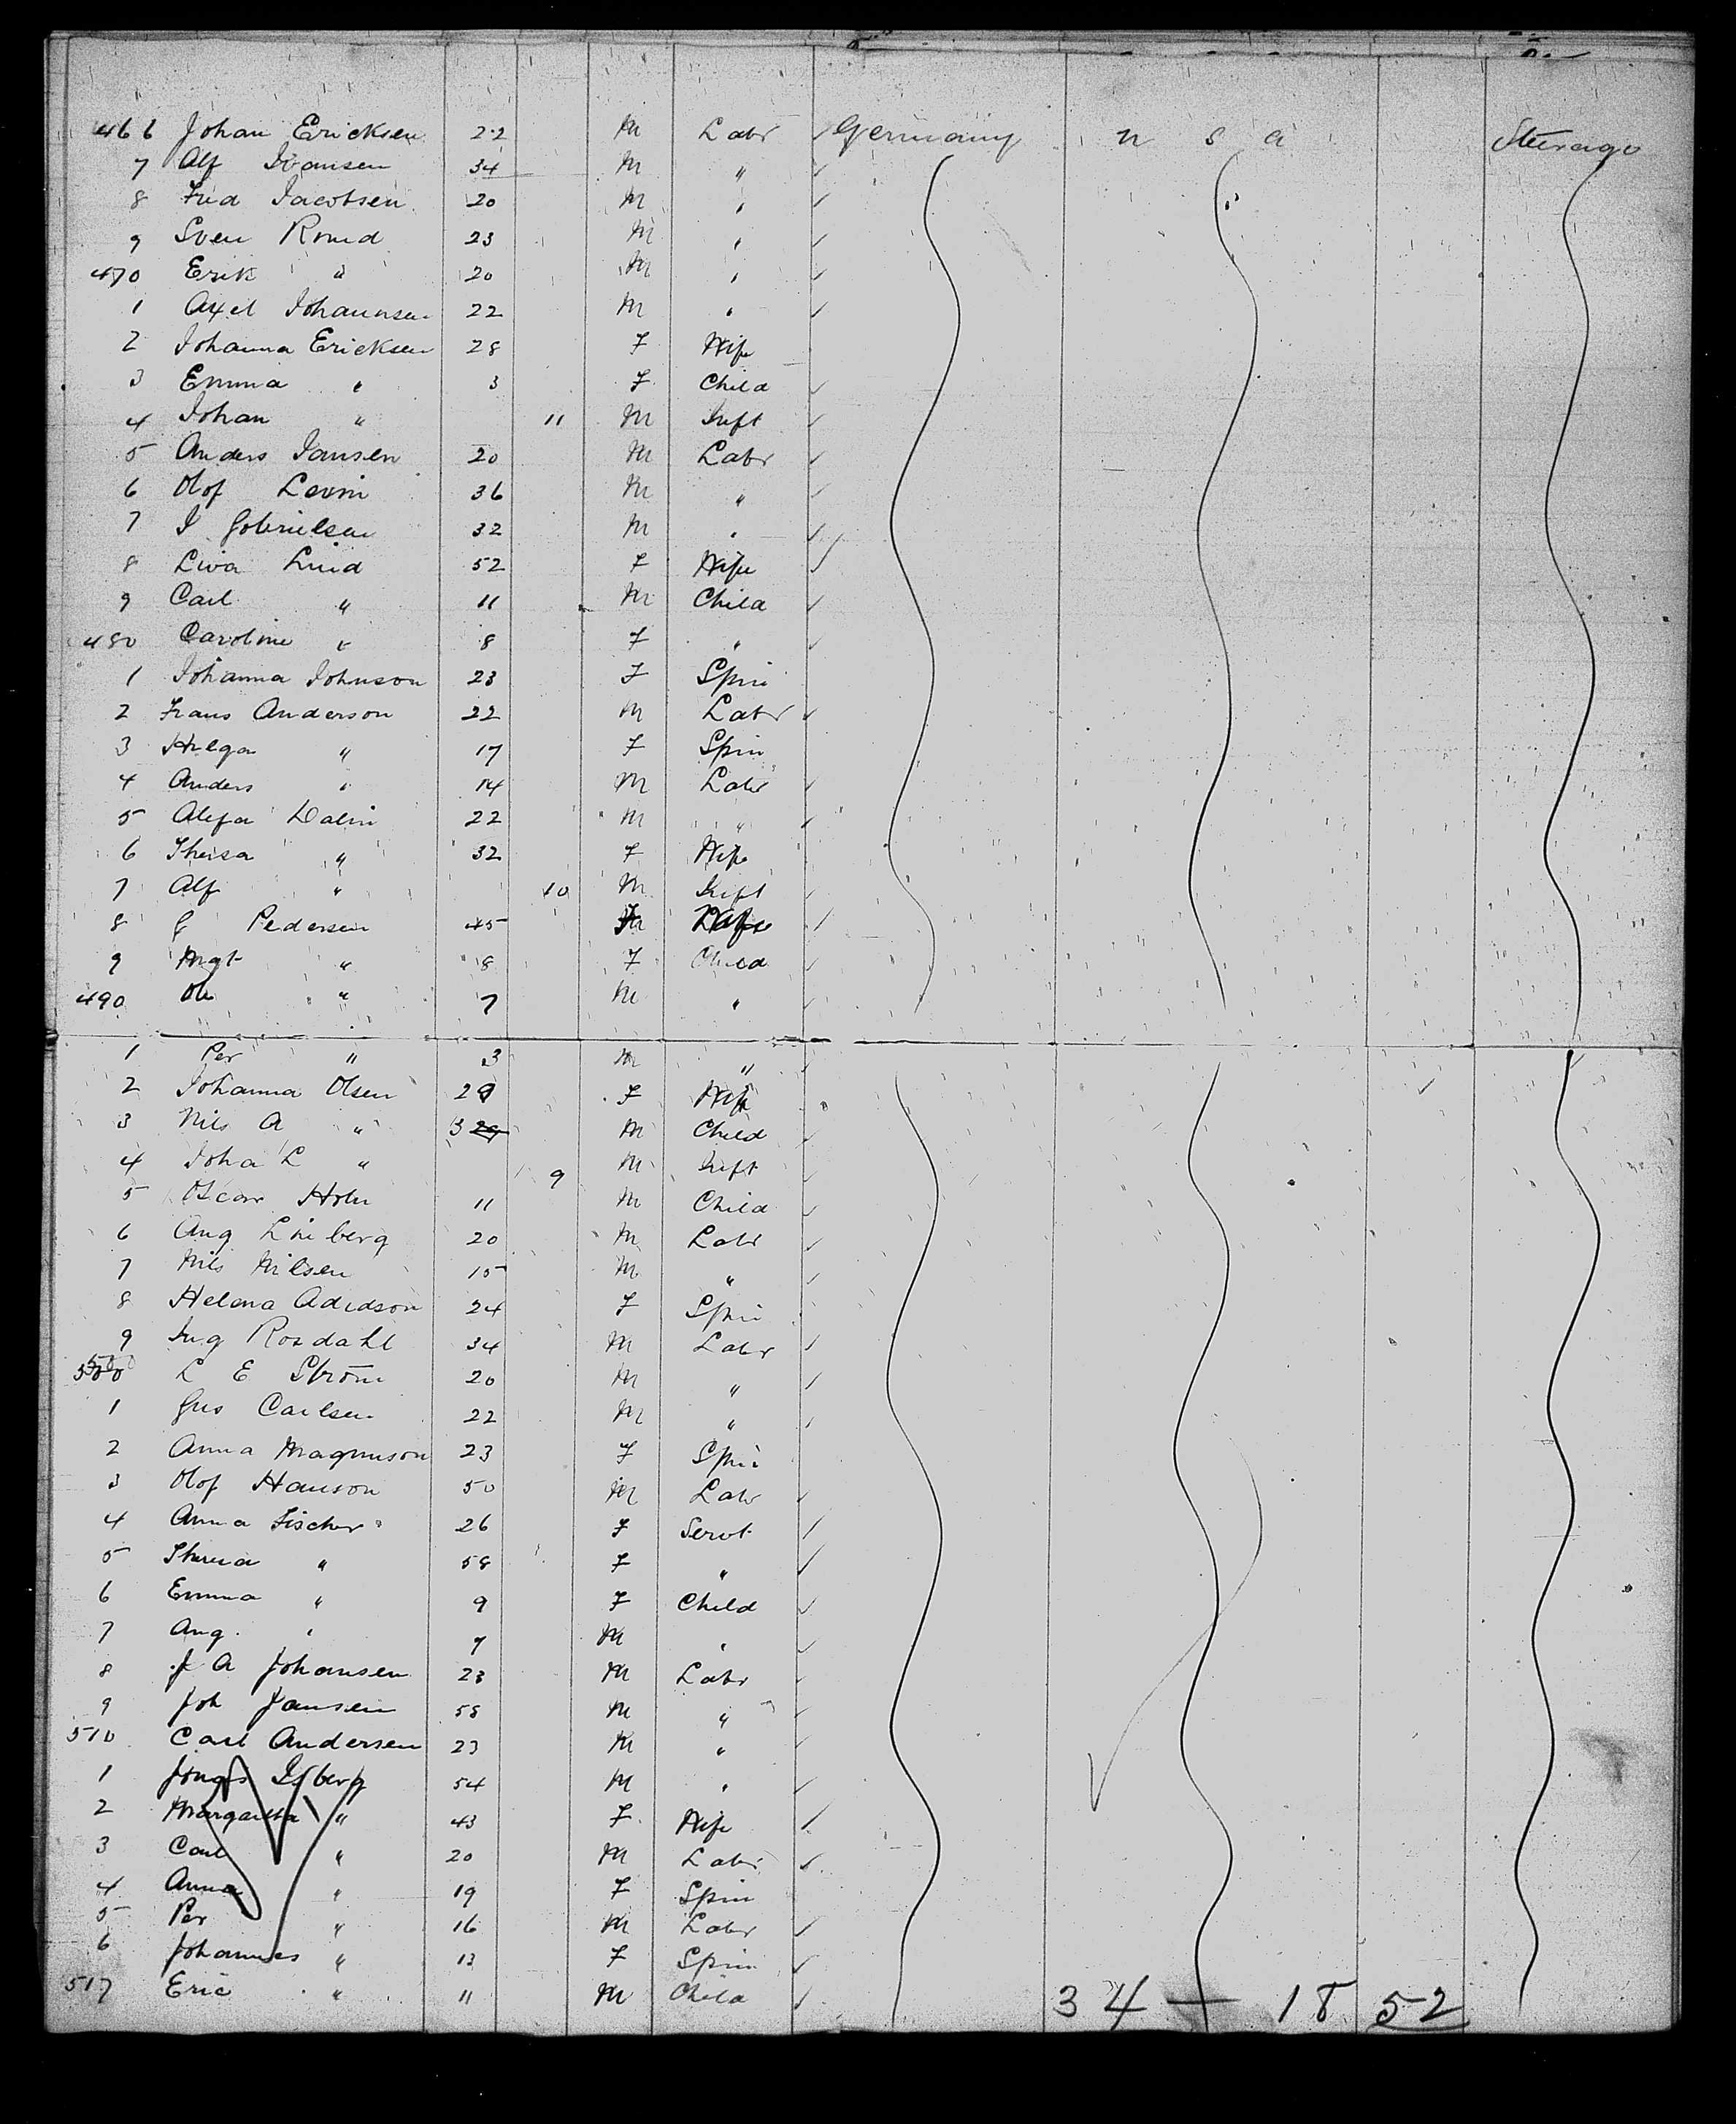 466 Johan Ericksen 22 M Labr Germany U S A Steerage
7 Alf Ivansen 34 M "
8 Fred Jacobsen 20 M "
9 Sven Romd 23 M "
470 Erik " 20 M "
1 Axel Johannsen 22 M "
2 Johanna Ericksen 28 F Wife
3 Emma " 3 F Child
4 Johan " 11 M Inft
5 Anders Jansen 20 M Labr
6 Olof Levin 36 M "
7 J Gobrielsen 32 M "
8 Lina Lind 52 F Wife
9 Carl " 11 M Child
480 Caroline " 8 F "
1 Johanna Johnson 23 F Spin
2 Frans Anderson 22 M Labr
3 Helga " 17 F Spin
4 Anders " 14 M Labr
5 Dalin 22 M "
6 " 32 F Wife
7 Alf " 10 M Inft
8 G Pedersen 45
9 Mgt " 8 F Child
490 Ole " 7 M "
1 Per " 3 M "
2 Johanna Olsen 29 F Wife
3 Nils A " 3 M Child
4 Joha L " 9 M Inft
5 Oscar Holm 11 M Child
6 Aug Linberg 20 M Labr
7 Nils Nilsen 15 M "
8 Helena Adidson 24 F Spin
9 Rosdahl 34 M Labr
500 L E Strom 20 M "
1 Gus Carlsen 22 M "
2 Anna Magnuson 23 F Spin
3 Olof Hanson 50 M Labr
4 Anna Fischer 26 F Servt
5 " 58 F "
6 Emma " 9 F Child
7 Aug. " 7 M "
8 J A Johansen 23 M Labr
9 Joh Jansen 58 M "
510 Carl Andersen 23 M "
1 54 M "
2 Margaretta " 43 F Wife
3 Carl " 20 M Labr
4 Anna " 19 F Spin
5 Per " 16 M Labr
6 Johannes " 13 F Spin
517 Eric " 11 M Child
34 + 18 52